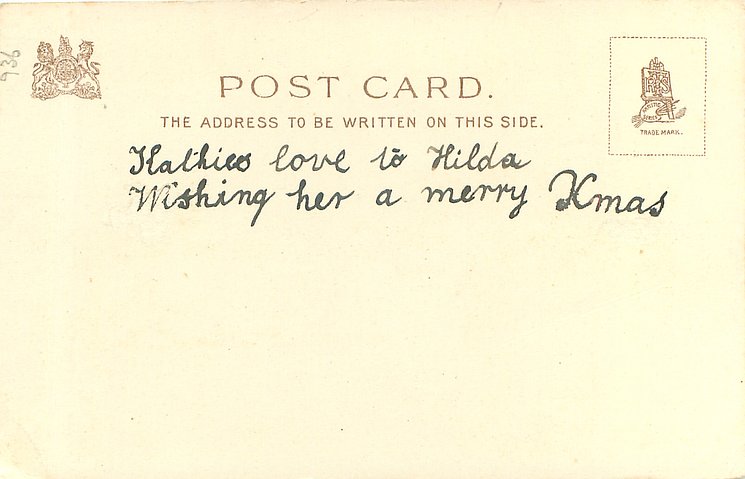 936
POST CARD.
THE ADDRESS TO BE WRITTEN ON THIS SIDE.
TRADE MARK.
Kathies love to Hilda
Wishing her a merry Xmas